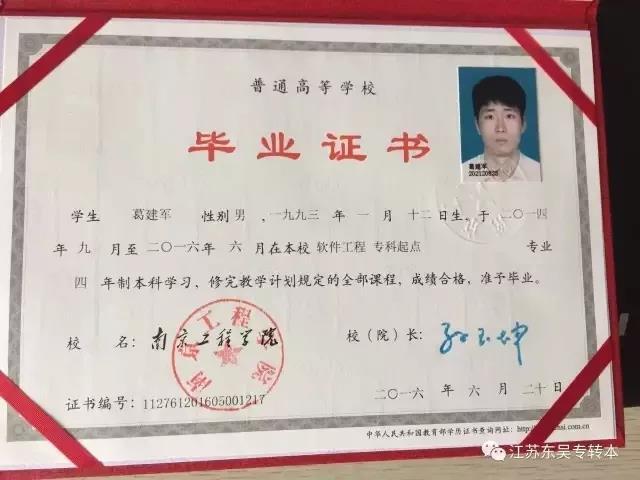 普通高等学校
毕业证书
葛建军
202120825
学生 葛建军 性别 男，一九九三年 一月 十二日生，于二〇一四
年 九 月至二〇一六年 六月在本校 软件工程 专科起点 专业
四 年制本科学习，修完教学计划规定的全部课程，成绩合格，准予毕业。
校 名：南京工程学院
南京工程学院
校（院）长：
证书编号：112761201605001217
二〇一六 年 六 月 二十日
中华人民共和国教育部学历证书查询网址：http://
江苏东吴专转本